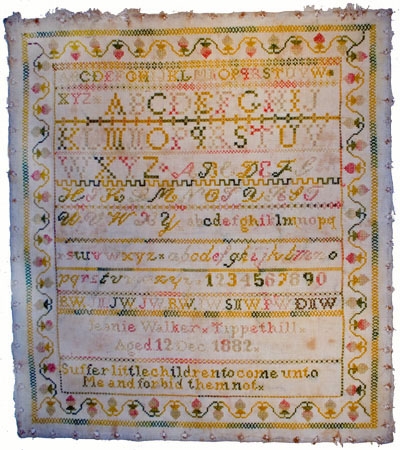 CDEFGHIJKLMNOPQRSTUVW
XYZ ABCDEFGHIJ
KLMNOPQRSTUV
WXYZ ABCDEF
UVWXYZ abcdefghiklmnopq
rsuvwxyz abcdefghiklmno
pqrstv 1234567890
RW JW JW RW RW SIW PW DIIW
Jeanie Walker Tippethill
Aged 12 Dec 1882
Suffer little children to come unto
Me and forbid them not